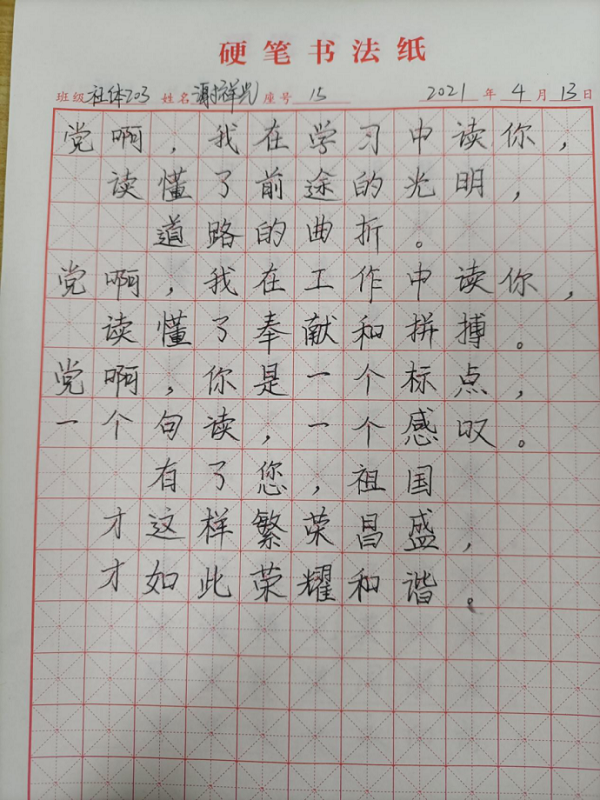 硬笔书法纸
班级 社体203 姓名 谢祥光 座号 15 2021 年 4 月 13 日
党啊，我在学习中读你，
读懂了前途的光明，
道路的曲折。
党啊，我在工作中读你，
读懂了奉献和拼搏。
党啊，你是一个标点，
一个句读，一个感叹。
有了您，祖国
才这样繁荣昌盛，
才如此荣耀和谐。